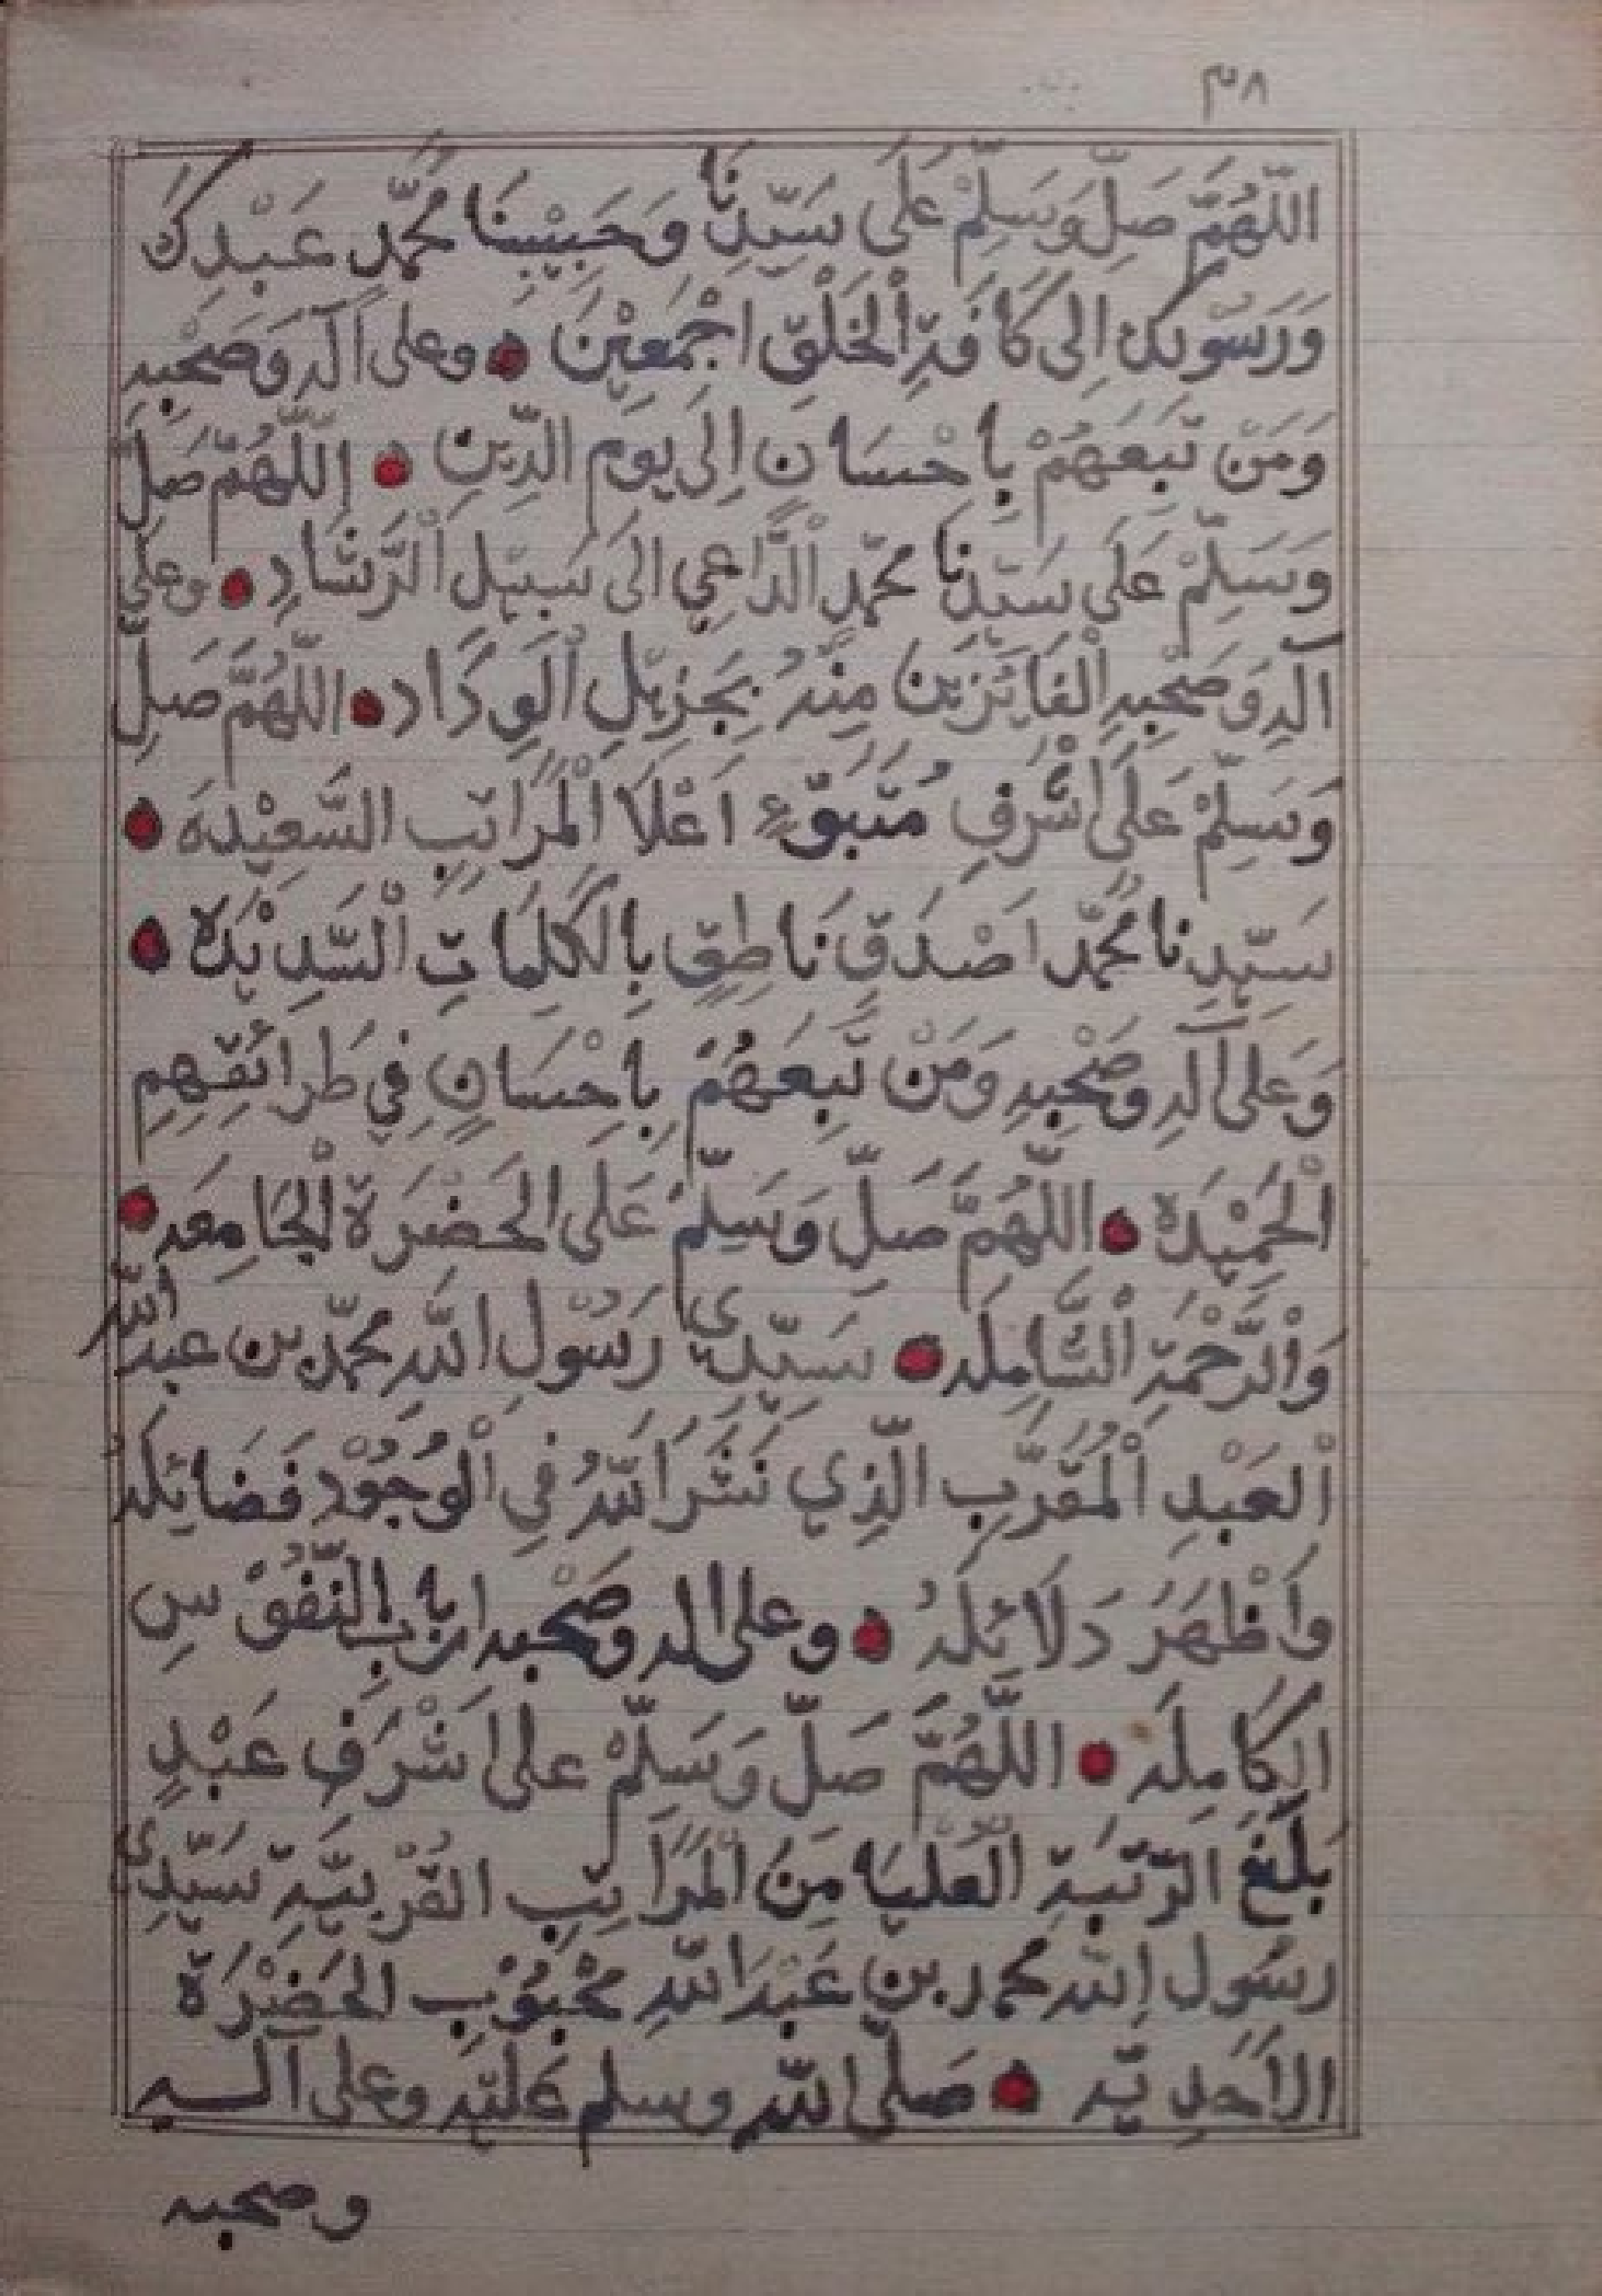 ٣٨
اللّٰهُمَّ صَلِّ وَسَلِّمْ عَلَى سَيِّدِنَا وَحَبِيْبِنَا مُحَمَّدٍ عَبْدِكَ
وَرَسُوْلِكَ اِلَى كَافَةِ الْخَلْقِ اَجْمَعِيْنَ • وعلى آلهِ وَصَحْبِهِ
وَمَنْ تَبِعَهُمْ بِاِحْسَانٍ اِلَى يَوْمِ الدِّينِ • اللّٰهُمَّ صَلِّ
وَسَلِّمْ عَلَى سَيِّدِنَا مُحَمَّدٍ الْدَّاعِي اِلَى سَبِيْلِ الْرَّشَادِ • وعلى
آلِهِ وَصَحْبِهِ الْفَائِزِيْنَ مِنْهُ بِجَزِيْلِ الْوِدَادِ • اللّٰهُمَّ صَلِّ
وَسَلِّمْ عَلَى اَشْرَفِ مُتَبَوِّءٍ اَعْلَا الْمَرَاتِبِ السَّعِيْدَه •
سَيِّدِنَا مُحَمَّدٍ اَصْدَقِ نَاطِقٍ بِالْكَلِمَاتِ الْسَّدِيْدَة •
وَعَلَى آلِهِ وَصَحْبِهِ وَمَنْ تَبِعَهُمْ بِاِحْسَانٍ فِي طَرَائِقِهِمِ
الْحَمِيْدَة • اللّٰهُمَّ صَلِّ وَسَلِّمْ عَلَى الحَضْرَةِ الْجَامِعَه •
وَالْرَّحْمَةِ الْشَّامِلَه • سَيِّدِي رَسُوْلِ اللّٰهِ مُحَمَّد بن عبد اللّٰه
الْعَبْدِ الْمُقَرَّبِ الَّذِي نَشَرَ اللّٰهُ فِي الْوُجُوْدِ فَضَائِلَهُ
وَاَظْهَرَ دَلَائِلَهُ • وعلى اله وصَحْبه ارباب النُّفُوْسِ
الكَامِلَه • اللّٰهُمَّ صَلِّ وَسَلِّمْ على اَشْرَفِ عَبْدٍ
بَلَغَ الرّتْبَةِ الْعُلْيَا مِنَ الْمَرَاتِبِ القُرْبِيَّةِ سَيِّدِي
رسُول اللّٰه محمد بن عَبْدِ اللّٰهِ مَحْبُوْبِ الحَضْرَة
الاَحَدِيَّه • صَلَّى اللّٰه وسلم عَلَيْهِ وعلى آلــه
وصحبه